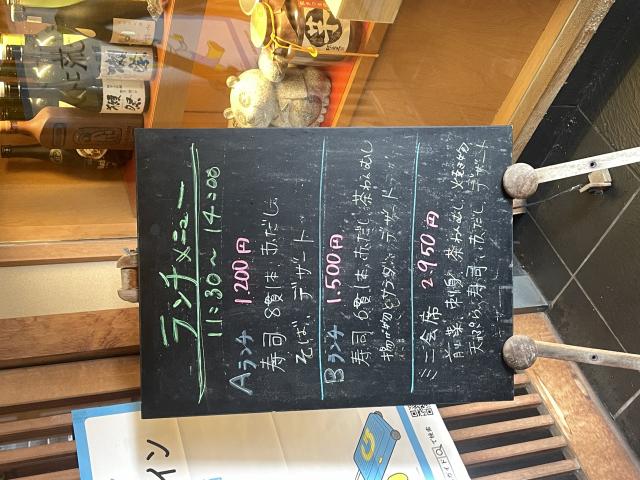 ランチメニュー
11:30〜14:00
Aランチ 1.200円
寿司 8貫1本、赤だし、
そば、デザート
Bランチ 1.500円
寿司 6貫1本、赤だし、茶わんむし
揚げ物、サラダ、デザート
ミニ会席 2.950円
前菜、刺身、茶わんむし、焼き物
天ぷら、寿司、赤だし、デザート
獺祭
イン
で検索